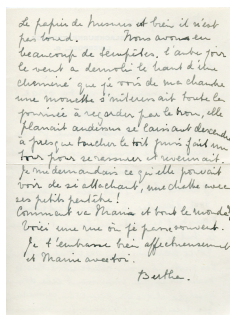 Le papier de Mesnus et bien il n'est
pas lourd. Nous avons eu
beaucoup de tempêtes, l'autre jour
le vent a démoli le haut d'une
cheminée que je vois de ma chambre
une mouette s'intéressait toute la
journée à regarder par le trou, elle
planait au dessus se laissant descendre
à presque toucher le toit puis fait un
tour pour se ramener et revenait.
Je me demandais ce qu'elle pouvait
voir de si attachant, une chatte avec
ses petits peut être!
Comment va Mania et tout le monde?
Voici une rue où je passe souvent.
Je t'embrasse bien affectueusement
et Manie avec toi.
Berthe.